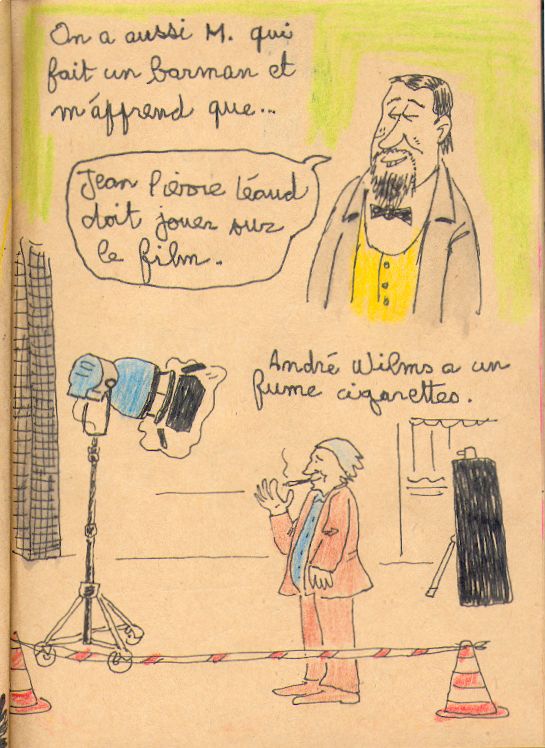 On a aussi M. qui
fait un barman et
m'apprend que...
Jean Pierre Léaud
doit jouer sur
le film.
André Wilms a un
fume cigarettes.